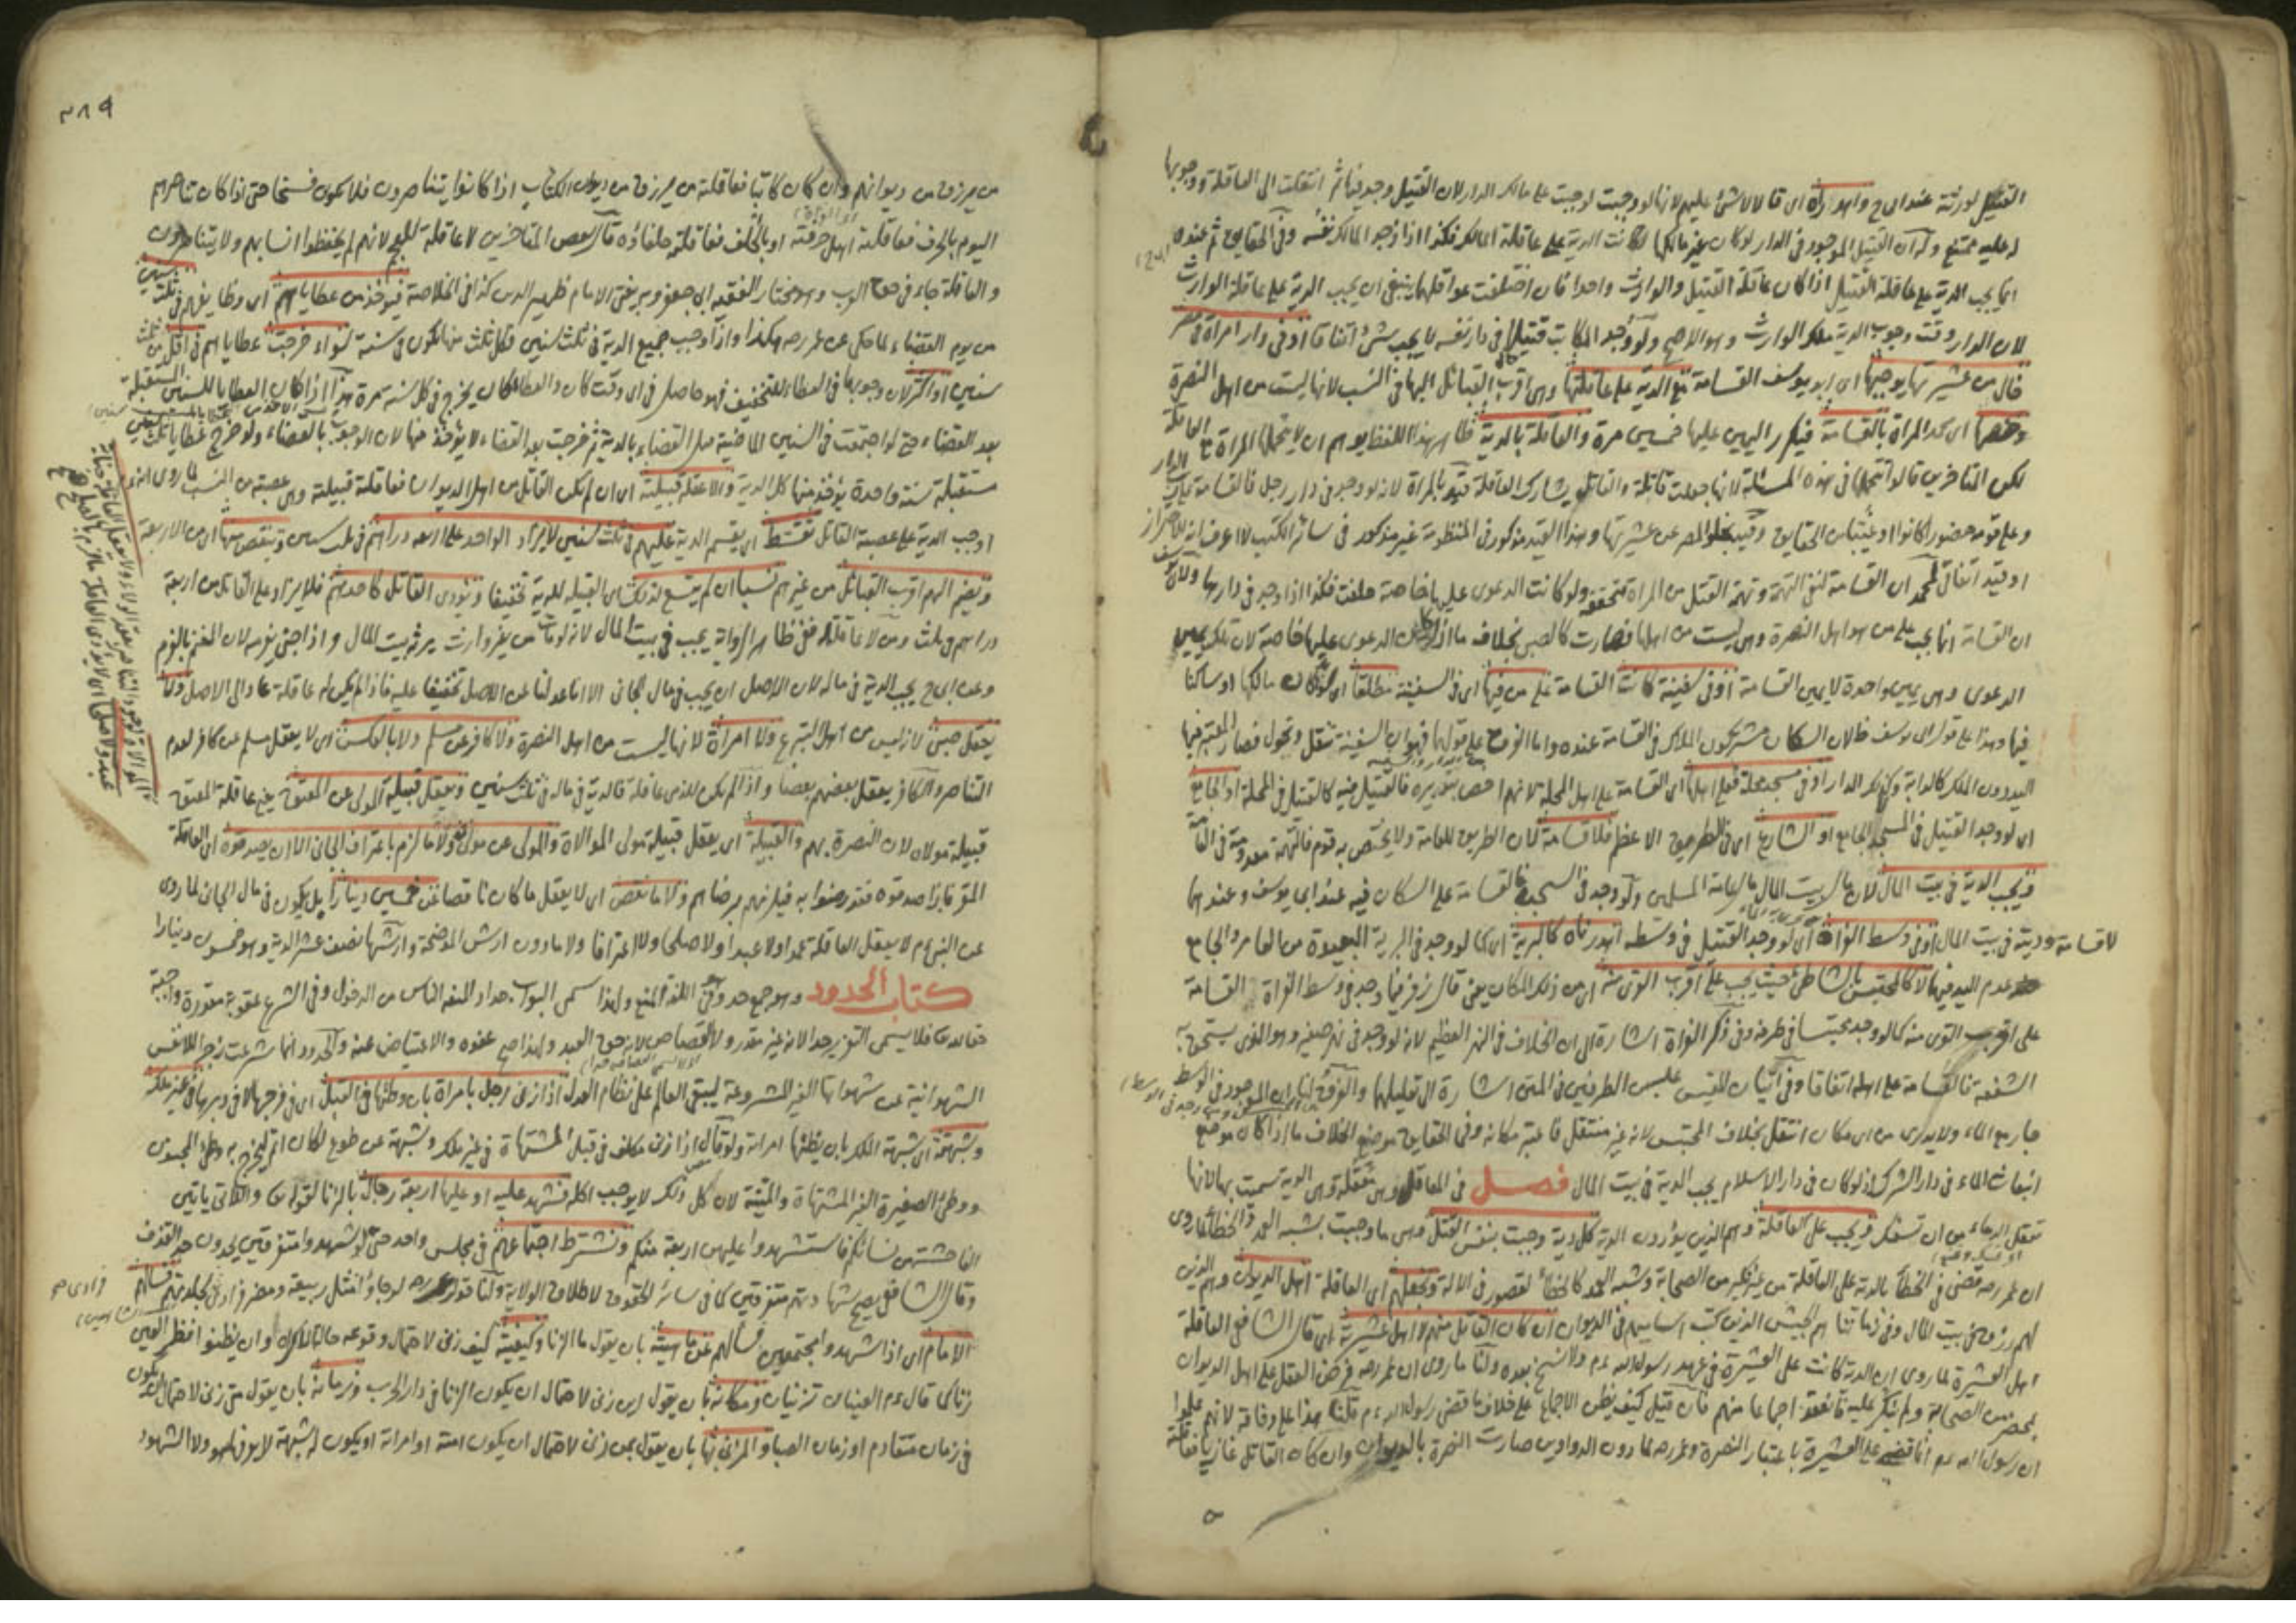 القتيل لورثته عند ابى ح واهدراه اى قالا لا شئ عليهم لانها لو وجبت لوجبت على مالك الدار لان القتيل وجد فيها ثم انتقلت الى العاقلة ووجوبها
له عليه ممتنع وله ان القتيل الموجود فى الدار لو كان غير مالكها كانت الدية على عاقلة المالك فكذا اذا وجد المالك نفسه وفى الحقايق ثم عنده
انما يجب الدية على عاقلة القتيل اذا كان عاقلة القتيل والوارث واحدا فان اختلفت عواقلهما ينبغى ان يجب الدية على عاقلة الوارث
لان الدار وقت وجوب الدية ملك الوارث وهو الاصح ولو وجد المكاتب قتيلا فى دار نفسه لا يجب شئ اتفاقا او فى دار امراة فى مصر
خال من عشيرتها يوجبها اى ابو يوسف القسامة مع الدية على عاقلتها وهى اقرب القبائل اليها فى النسب لانها ليست من اهل النصرة
وخصها اى محمد المراة بالقسامة فيكرر اليمين عليها خمسين مرة والعاقلة بالدية ظاهر هذا اللفظ يوهم ان لا يتحملها المراة مع العاقلة
لكن المتاخرين قالوا تتحمل فى هذه المسئلة لانها جعلت قاتلة والقاتل يشارك العاقلة قيد بالمراة لانه لو وجد فى دار رجل فالقسامة على رب الدار
وعلى قومه حضورا كانوا او غيبا من الحقايق وقيد بخلو المصر عن عشيرتها وهذا القيد مذكور فى المنظومة غير مذكور فى سائر الكتب لا اعرف انه للاحتراز
او قيد اتفاقى لمحمد ان القسامة لنفى التهمة وتهمة القتل من المراة متحققة ولو كانت الدعوى عليها خاصة حلفت فكذا اذا وجد فى دارها ولابى يوسف
ان القسامة انما يجب على من هو اهل النصرة وهى ليست من اهلها فصارت كالصبى بخلاف ما اذا كان الدعوى عليها خاصة لان تلك يمين
الدعوى وهى يمين واحدة لا يمين القسامة او فى سفينة كانت القسامة على من فيها اى فى السفينة مطلقا اى سواء كان مالكها او ساكنا
فيها وهذا على قول ابى يوسف ظ لان السكان مشتركون الملاك فى القسامة عنده واما الفرق على قولهما فهو ان السفينة تنقل وتحول فصار المعتبر فيها
اليد دون الملك كالدابة ولا كذلك الدار او فى مسجد محلة فعلى اهلها اى القسامة على اهل المحلة لانهم اخص بتدبيره فالقتيل فيه كالقتيل فى المحلة او الجامع
اى لو وجد القتيل فى المسجد الجامع او الشارع اى فى الطريق الاعظم فلا قسامة لان الطريق للعامة ولا يختص به قوم فالتهمة معدومة فى العامة
فيجب الدية فى بيت المال لان مال بيت المال مال عامة المسلمين ولو وجد فى السجن فالقسامة على السكان فيه عند ابى يوسف وعندهما
لا قسامة وديته فى بيت المال او فى وسط الفرات اى لو وجد القتيل فى وسطه اهدرناه كالبرية اى كما لو وجد فى البرية البعيدة من العامر والجامع
عدم اليد فيها لا كالمحتبس بالشاطئ حيث يجب على اقرب القرى منه اى من ذلك المكان يعنى قال زفر فيما وجد فى وسط الفرات القسامة
على اقرب القرى منه كما لو وجد محتبسا فى طرفه وفى ذكر الفرات اشارة الى ان الخلاف فى النهر العظيم لانه لو وجد فى نهر صغير وهو الذى يستحق به
الشفعة فالقسامة على اهله اتفاقا وفى اثبات المقيس عليه من الطرفين فى المتن اشارة الى تعليلهما والفرق لنا ان الموجود فى الوسط
جار مع الماء ولا يدرى من اى مكان انتقل بخلاف المحتبس لانه غير منتقل فاعتبر مكانه وفى الحقايق موضع الخلاف ما اذا كان موضع
انبعاث الماء فى دار الشرك اذ لو كان فى دار الاسلام يجب الدية فى بيت المال فصل فى المعاقل وهى معقلة وهى الدية سميت بها لانها
تعقل الدماء من ان تسفك ويجب على العاقلة وهم الذين يؤدون الدية كل دية وجبت بنفس القتل وهى ما وجبت بشبه العمد والخطأ لما روى
ان عمر رضه قضى فى الخطأ بالدية على العاقلة من غير نكير من الصحابة وشبه العمد كالخطأ لقصور فى الالة ونجعلهم اى العاقلة اهل الديوان وهم الذين
لهم رزق فى بيت المال وفى زماننا هم الجيش الذين كتب اساميهم فى الديوان ان كان القاتل منهم لا اهل عشيرته اى قال الشافعى العاقلة
اهل العشيرة لما روى ان الدية كانت على العشيرة فى عهد رسول الله عم ولا نسخ بعده ولنا ما روى ان عمر رضه فرض العقل على اهل الديوان
بمحضر من الصحابة ولم ينكر عليه فانعقد اجماعا منهم فان قيل كيف يظن الاجماع على خلاف ما قضى رسول الله عم قلنا هذا على وفاقه لانهم علموا
ان رسول الله عم انما قضى على العشيرة باعتبار النصرة وعمر رضه لما دون الدواوين صارت النصرة بالديوان وان كان القاتل غازيا فعاقلته
٣٨٩
من يرزق من ديوانهم وان كان كاتبا فعاقلته من يرزق من ديوان الكتاب اذا كانوا يتناصرون فلا يكون نسخا حتى اذا كان تناصرهم
اليوم بالحرف فعاقلته اهل حرفته او بالحلف فعاقلته حلفاؤه قال بعض المتاخرين لا عاقلة للعجم لانهم لم يحفظوا انسابهم ولا يتناصرون
والعاقلة جاء فى حق العرب وهو مختار الفقيه ابى جعفر وبه يفتى الامام ظهير الدين كذا فى الخلاصة فيؤخذ من عطاياهم اى وظايفهم فى ثلث سنين
من يوم القضاء لما حكى عن عمر رضه هكذا واذا وجب جميع الدية فى ثلث سنين فكل ثلث منها يكون فى سنة سواء خرجت عطاياهم فى اقل من ثلث
سنين او اكثر لان وجوبها فى العطاء للتخفيف فهو حاصل فى اى وقت كان والعطاء كان يخرج فى كل سنة مرة هذا اذا كان العطايا للسنين المستقبلة
بعد القضاء حتى لو اجتمعت فى السنين الماضية قبل القضاء بالدية ثم خرجت بعد القضاء لا يؤخذ منها لان الوجوب بالقضاء ولو خرج عطايا ثلث سنين
مستقبلة سنة واحدة يؤخذ منها كل الدية والا عقله قبيلته اى ان لم يكن القاتل من اهل الديوان فعاقلته قبيلته وهى عصبته من النسب لما روى انه عم
اوجب الدية على عصبة القاتل تقسط اى يقسم الدية عليهم فى ثلث سنين لا يزاد الواحد على اربعة دراهم فى ثلث سنين وينقص منها اى من الاربعة
ويضم اليهم اقرب القبائل من غيرهم نسبا اى لم يتسع لذلك اى القبيلة للدية تخفيفا ويؤدى القاتل كاحدهم فلا يزاد على القاتل من اربعة
دراهم فى ثلث ومن لا عاقلة له ففى ظاهر الرواية يجب فى بيت المال لانه لو مات من غير وارث يرثه بيت المال واذا جنى يغرمه لان المغنم بالغرم
وعن ابى ح يجب الدية فى ماله لان الاصل ان يجب فى مال الجانى الا انا عدلنا عن الاصل تخفيفا عليه فاذا لم يكن له عاقلة عاد الى الاصل ولا
يعقل صبى لانه ليس من اهل التبرع ولا امراة لانها ليست من اهل النصرة ولا كافر عن مسلم ولا بالعكس اى لا يعقل مسلم عن كافر لعدم
التناصر والكافر يعقل بعضهم بعضا واذا لم يكن للذمى عاقلة فالدية فى ماله فى ثلث سنين ويعقل قبيلة المولى عن المعتق يعنى عاقلة المعتق
قبيلة مولاه لان النصرة بهم والقبيلة اى يعقل قبيلة مولى الموالاة والمولى عن مولاه ولا ما لزم باعتراف الجانى الا ان يصدقوه اى العاقلة
المقر فاذا صدقوه فقد رضوا به فيلزمهم برضاهم ولا ما نقص اى لا يعقل ما كان ناقصا عن خمسين دينارا بل يكون فى مال الجانى لما روى
عن النبى عم لا يعقل العاقلة عمدا ولا عبدا ولا صلحا ولا اعترافا ولا ما دون ارش الموضحة وارشها نصف عشر الدية وهو خمسون دينارا
كتاب الحدود وهو جمع حد وهو فى اللغة المنع ولهذا سمى البواب حدادا لمنعه الناس من الدخول وفى الشرع عقوبة مقدرة واجبة
حقا لله تعالى فلا يسمى التعزير حدا لانه غير مقدر ولا القصاص لانه حق العبد ولهذا صح عفوه والاعتياض عنه والحدود انما شرعت زجرا للانفس
الشهوانية عن شهواتها الغير المشروعة ليبقى العالم على نظام العدل اذا زنى رجل بامراة بان وطئها فى القبل اى فى فرجها لا فى دبرها فى غير ملكه
وشبهته اى شبهة الملك بان يظنها امراته ولو قال اذا زنى مكلف فى قبل المشتهاة فى غير ملك وشبهة عن طوع لكان اتم ليخرج به وطئ المجنون
ووطئ الصغيرة الغير المشتهاة والميتة لان كل ذلك لا يوجب الحد فشهد عليه او عليها اربعة رجال بالزنا لقوله تعالى واللاتى ياتين
الفاحشة من نسائكم فاستشهدوا عليهن اربعة منكم ونشترط اجتماعهم فى مجلس واحد حتى لو شهدوا متفرقين يحدون حد القذف
وقال الشافعى يصح شهادتهم متفرقين كما فى سائر الحقوق لاطلاق الولاية ولنا قول عمر رضه لو جاؤا مثل ربيعة ومضر فرادى لجلدتهم فسالهم
الامام اى اذا شهدوا مجتمعين فسالهم عن ماهيته بان يقول ما الزنا وكيفيته كيف زنى لاحتمال وقوعه حالة الاكراه وان يظنوا نظر العين
زنا كما قال عم العينان تزنيان ومكانه بان يقول اين زنى لاحتمال ان يكون الزنا فى دار الحرب وزمانه بان يقول متى زنى لاحتمال ان يكون
فى زمان متقادم او زمان الصبا والمزنى بها بان يقول بمن زنى لاحتمال ان يكون امته او امراته او يكون له شبهة لا يعرفها هو ولا الشهود